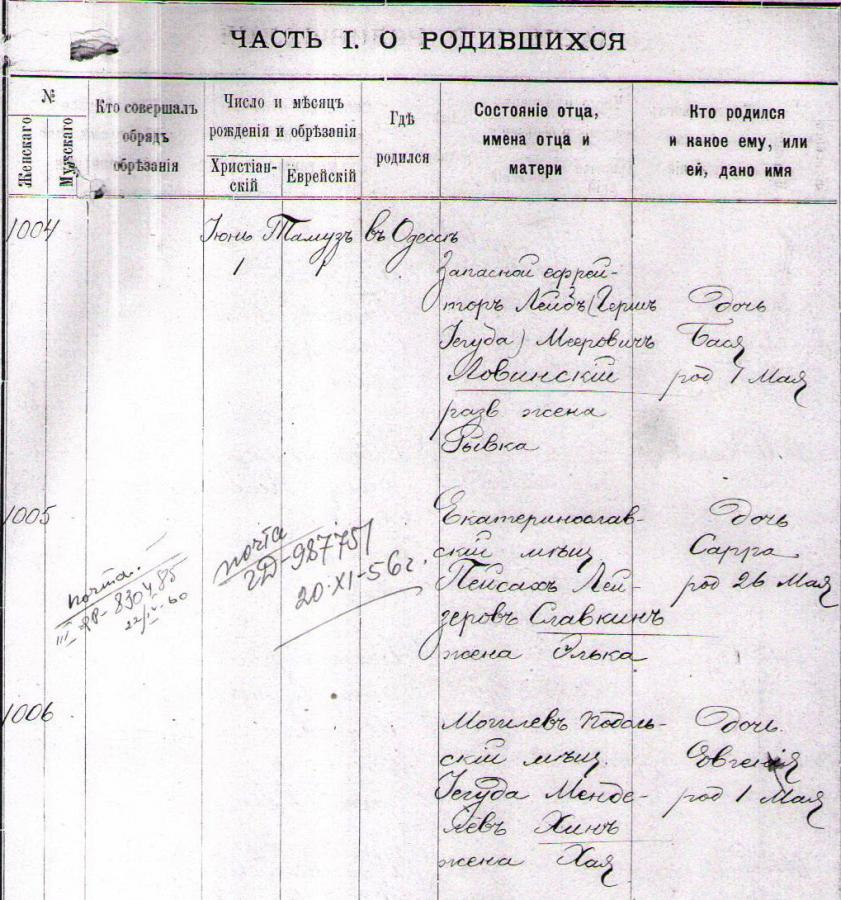 ЧАСТЬ I. О РОДИВШИХСЯ
№
Женскаго
Мужскаго
Кто совершалъ
обрядъ
обрѣзанія
Число и мѣсяцъ
рожденія и обрѣзанія
Христіан-
скій
Еврейскій
Гдѣ
родился
Состояніе отца,
имена отца и
матери
Кто родился
и какое ему, или
ей, дано имя
1004
Іюнь
1
Тамузъ
въ Одессѣ
Запасной ефрей-
торъ Лейбъ (Гершъ
Іегуда) Мееровичъ
Ловинскій
разв жена
Рывка
Дочь
Бася
род 1 Мая
1005
почта.
III ЯР-830485
22/IV-60
почта
гД-987751
20-XI-56г.
Екатеринослав-
скій мѣщ
Пейсахъ Лей-
зеровъ Славкинъ
жена Элька
Дочь
Сарра
род 26 Мая
1006
Могилевъ Подоль-
скій мѣщ.
Іегуда Менде-
левъ Хинъ
жена Хая
Дочь.
Евгенія
род 1 Мая